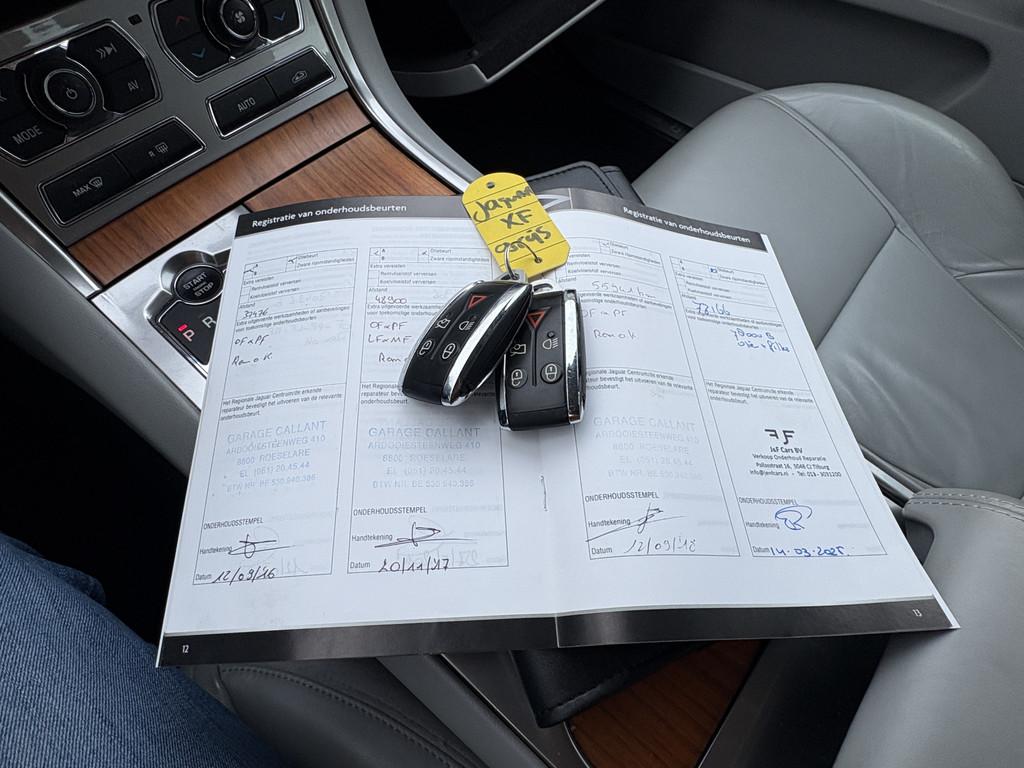 MODE
AV
AUTO
MAX
R
START
STOP
P
R
Jaguar
XF
grijs
Registratie van onderhoudsbeurten
37476
Extra uitgevoerde werkzaamheden of aanbevelingen
voor toekomstige onderhoudsbeurt:
OF + PF
Rem OK
Het Regionale Jaguar Centrum/de erkende
reparateur bevestigt het uitvoeren van de relevante
onderhoudsbeurt.
GARAGE CALLANT
ARDOOISESTEENWEG 410
8800 ROESELARE
TEL (051) 20.45.44
BTW NR. BE 530.940.386
ONDERHOUDSSTEMPEL
Handtekening
Datum 12/09/16
12
Oliebeurt
Zware rijomstandigheden
Extra vereisten
Remvloeistof verversen
Koelvloeistof verversen
Afstand
48900
OF + PF
LF + MF
Rem
Het Regionale
reparateur
onderhoudsbeurt.
GARAGE CALLANT
ARDOOISESTEENWEG 410
8800 ROESELARE
TEL (051) 20.45.44
BTW NR. BE 530.940.386
ONDERHOUDSSTEMPEL
Handtekening
Datum 20/11/17
Registratie van onderhoudsbeurten
Oliebeurt
Zware rijomstandigheden
Remvloeistof verversen
Koelvloeistof verversen
OF + PF
Rem OK
Regionale Jaguar Centrum/de erkende
reparateur bevestigt het uitvoeren van de relevante
onderhoudsbeurt.
GARAGE CALLANT
ARDOOISESTEENWEG 410
8800 ROESELARE
TEL (051) 20.45.44
BTW NR. BE 530.940.386
ONDERHOUDSSTEMPEL
Handtekening
Datum 12/09/18
Oliebeurt
Zware rijomstandigheden
Extra vereisten
Remvloeistof verversen
Koelvloeistof verversen
Afstand
73166
Extra uitgevoerde werkzaamheden of aanbevelingen
voor toekomstige onderhoudsbeurt:
Olie + filter
Het Regionale Jaguar Centrum/de erkende
reparateur bevestigt het uitvoeren van de relevante
onderhoudsbeurt.
J&F Cars BV
Verkoop Onderhoud Reparatie
Pallasstraat 16, 5048 CJ Tilburg
info@jenfcars.nl - Tel: 013-3031200
ONDERHOUDSSTEMPEL
Handtekening
Datum 14-03-2025
13